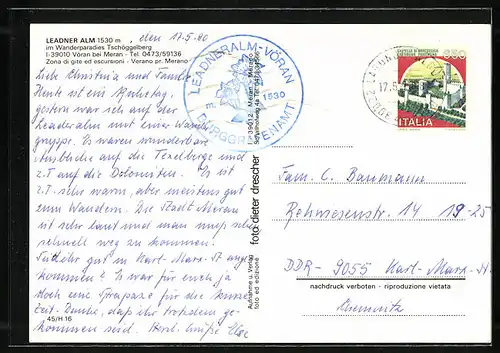 LEADNER ALM 1530 m
im Wanderparadies Tschögglberg
I-39010 Vöran bei Meran - Tel. 0473/59136
Zona di gite ed escursioni - Verano pr. Merano
, den 17.5.90
Liebe Christina und Familie
Heute ist ein Ruhetag,
gestern war ich auf der
Leaderalm mit einer Wander-
gruppe. Es waren wunderbare
Ausblicke auf die Texelberge und
z.T auf die Dolomiten. Es ist
z.T. sehr warm, aber meistens gut
zum Wandern. Die Stadt Meran
ist sehr laut und man muß sehr
schnell weg zu kommen.
Seid Ihr gut in Karl-Marx-St ange
kommen? Es war für euch ja
doch eine Strapaze für die kurze
Zeit. Danke, daß ihr trotzdem ge-
kommen seid. Herzl. Grüße
45/H 16
LEADNERALM-VÖRAN
1530
BURGGRAFENAMT
foto dieter drescher
I-39012 Meran - Merano
Aufnahme u. Verlag
foto ed edizione
650
ITALIA
17.5.
Fam. C. Baumann
Rehwiesenstr. 14 19-25
DDR-9055 Karl-Marx-St.
nachdruck verboten - riproduzione vietata
Chemnitz